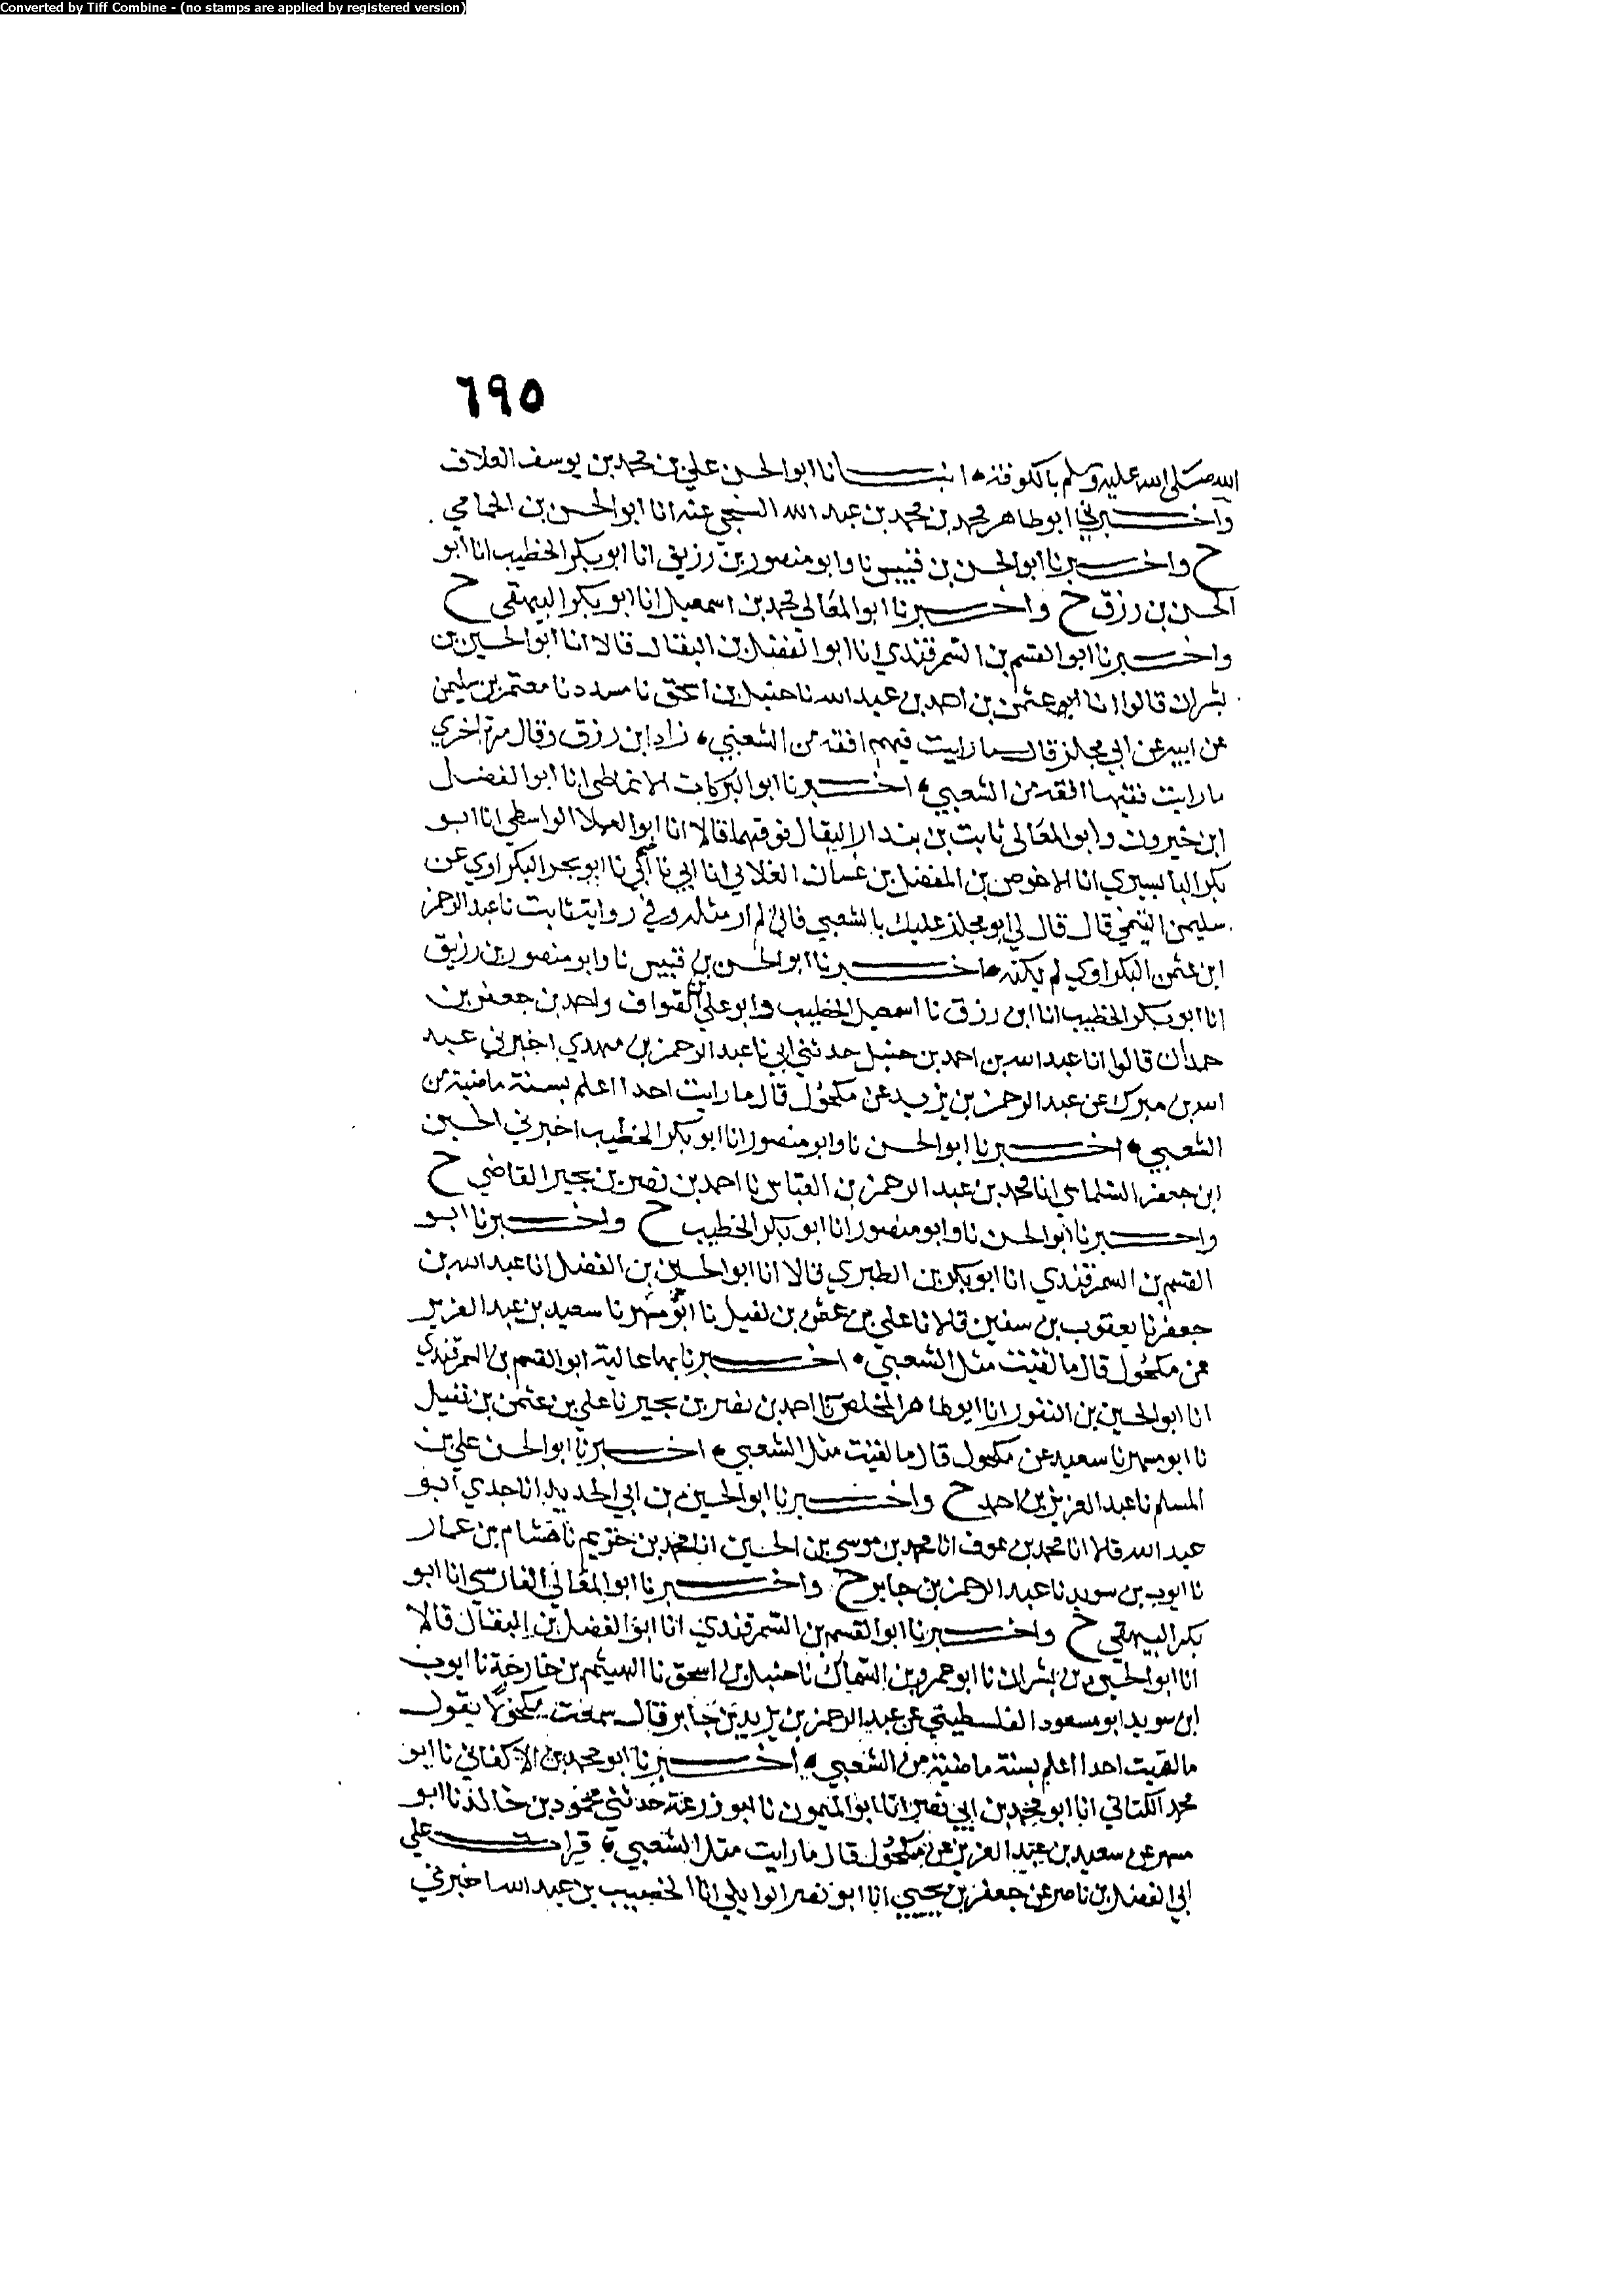 Converted by Tiff Combine - (no stamps are applied by registered version)
٦٩٥
الله صلى الله عليه وسلم بالكوفة • انبـــانا ابو الحسن علي بن محمد بن يوسف العلاف
واخـــبرني ابو طاهر محمد بن محمد بن عبد الله السنجي عنه انا ابو الحسن بن الحمامي
ح واخـــبرنا ابو الحسن بن قبيس نا وابو منصور بن زريق انا ابو بكر الخطيب انا ابو
الحسن بن رزق ح واخـــبرنا ابو المعالي محمد بن اسمعيل انا ابو بكر البيهقي ح
واخـــبرنا ابو القسم بن السمرقندي انا ابو الفضل بن البقال قالا انا ابو الحسين بن
بشران قالوا انا ابو عثمن بن احمد بن عبد الله نا حنبل بن اسحق نا مسدد نا معتمر بن سليمن
عن ابيه عن ابي مجلز قال ما رايت فيهم افقه من الشعبي • زاد ابن رزق وقال مرة اخرى
ما رايت فقيها افقه من الشعبي • اخـــبرنا ابو البركات الانماطي انا ابو الفضل
ابن خيرون وابو المعالي ثابت بن بندار البقال قالا انا ابو العلا الواسطي انا ابو
بكر البابسيري انا الاخوص بن المفضل بن غسان الغلابي انا ابي نا ابو بحر البكراوي عن
سليمن التيمي قال قال لي ابو مجلز عليك بالشعبي فاني لم ار مثله وفي رواية ثابت نا عبد الرحمن
ابن عثمن البكراوي لم يكنه • اخـــبرنا ابو الحسن بن قبيس نا وابو منصور بن زريق
انا ابو بكر الخطيب انا ابن رزق نا اسمعيل الخطيب وابو علي الصواف واحمد بن جعفر بن
حمدان قالوا انا عبد الله بن احمد بن حنبل حدثني ابي نا عبد الرحمن بن مهدي اخبرني عبد
الله بن مبرك عن عبد الرحمن بن يزيد عن مكحول قال ما رايت احدا اعلم بسنة ماضية من
الشعبي • اخـــبرنا ابو الحسن نا وابو منصور انا ابو بكر الخطيب اخبرني الحسين
ابن جعفر السلماسي انا محمد بن عبد الرحمن بن العباس نا احمد بن نصر بن بجير القاضي ح
واخـــبرنا ابو الحسن نا وابو منصور انا ابو بكر الخطيب ح واخـــبرنا ابو
القسم بن السمرقندي انا ابو بكر بن الطبري قالا انا ابو الحسين بن الفضل انا عبد الله بن
جعفر نا يعقوب بن سفين قالا نا علي بن عثمن بن نفيل نا ابو مسهر نا سعيد بن عبد العزيز
عن مكحول قال ما لقيت مثل الشعبي • اخـــبرنا بها عالية ابو القسم بن السمرقندي
انا ابو الحسين بن النقور انا ابو طاهر المخلص نا احمد بن نصر بن بجير نا علي بن عثمن بن نفيل
نا ابو مسهر نا سعيد عن مكحول قال ما لقيت مثل الشعبي • اخـــبرنا ابو الحسن علي بن
المسلم نا عبد العزيز بن احمد ح واخـــبرنا ابو الحسين بن ابي الحديد انا جدي ابو
عبد الله قالا انا محمد بن عوف انا محمد بن موسى بن الحسين انا محمد بن خريم نا هشام بن عمار
نا ايوب بن سويد نا عبد الرحمن بن جابر ح واخـــبرنا ابو المعالي الفارسي انا ابو
بكر البيهقي ح واخـــبرنا ابو القسم بن السمرقندي انا ابو الفضل بن البقال قالا
انا ابو الحسين بن بشران نا ابو عمرو بن السماك نا حنبل بن اسحق نا الهيثم بن خارجة نا ايوب
ابن سويد ابو مسعود الفلسطيني عن عبد الرحمن بن يزيد بن جابر قال سمعت مكحولا يقول
ما لقيت احدا اعلم بسنة ماضية من الشعبي • اخـــبرنا ابو محمد بن الاكفاني نا ابو
محمد الكتاني انا ابو محمد بن ابي نصر انا ابو الميمون نا ابو زرعة حدثني محمود بن خالد نا ابو
مسهر عن سعيد بن عبد العزيز عن مكحول قال ما رايت مثل الشعبي • قرات على
ابي الفضل بن ناصر عن جعفر بن يحيى انا ابو نصر الوايلي انا الخصيب بن عبد الله اخبرني